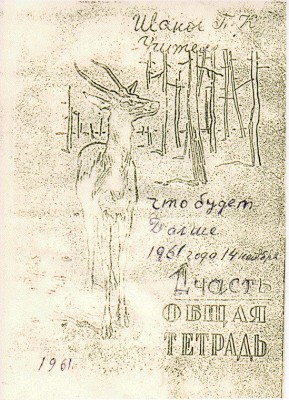 Иванов П. К
Учитель
что будет
Дальше
1961 года 14 ноября
1 часть
ОБЩАЯ
ТЕТРАДЬ
1961.